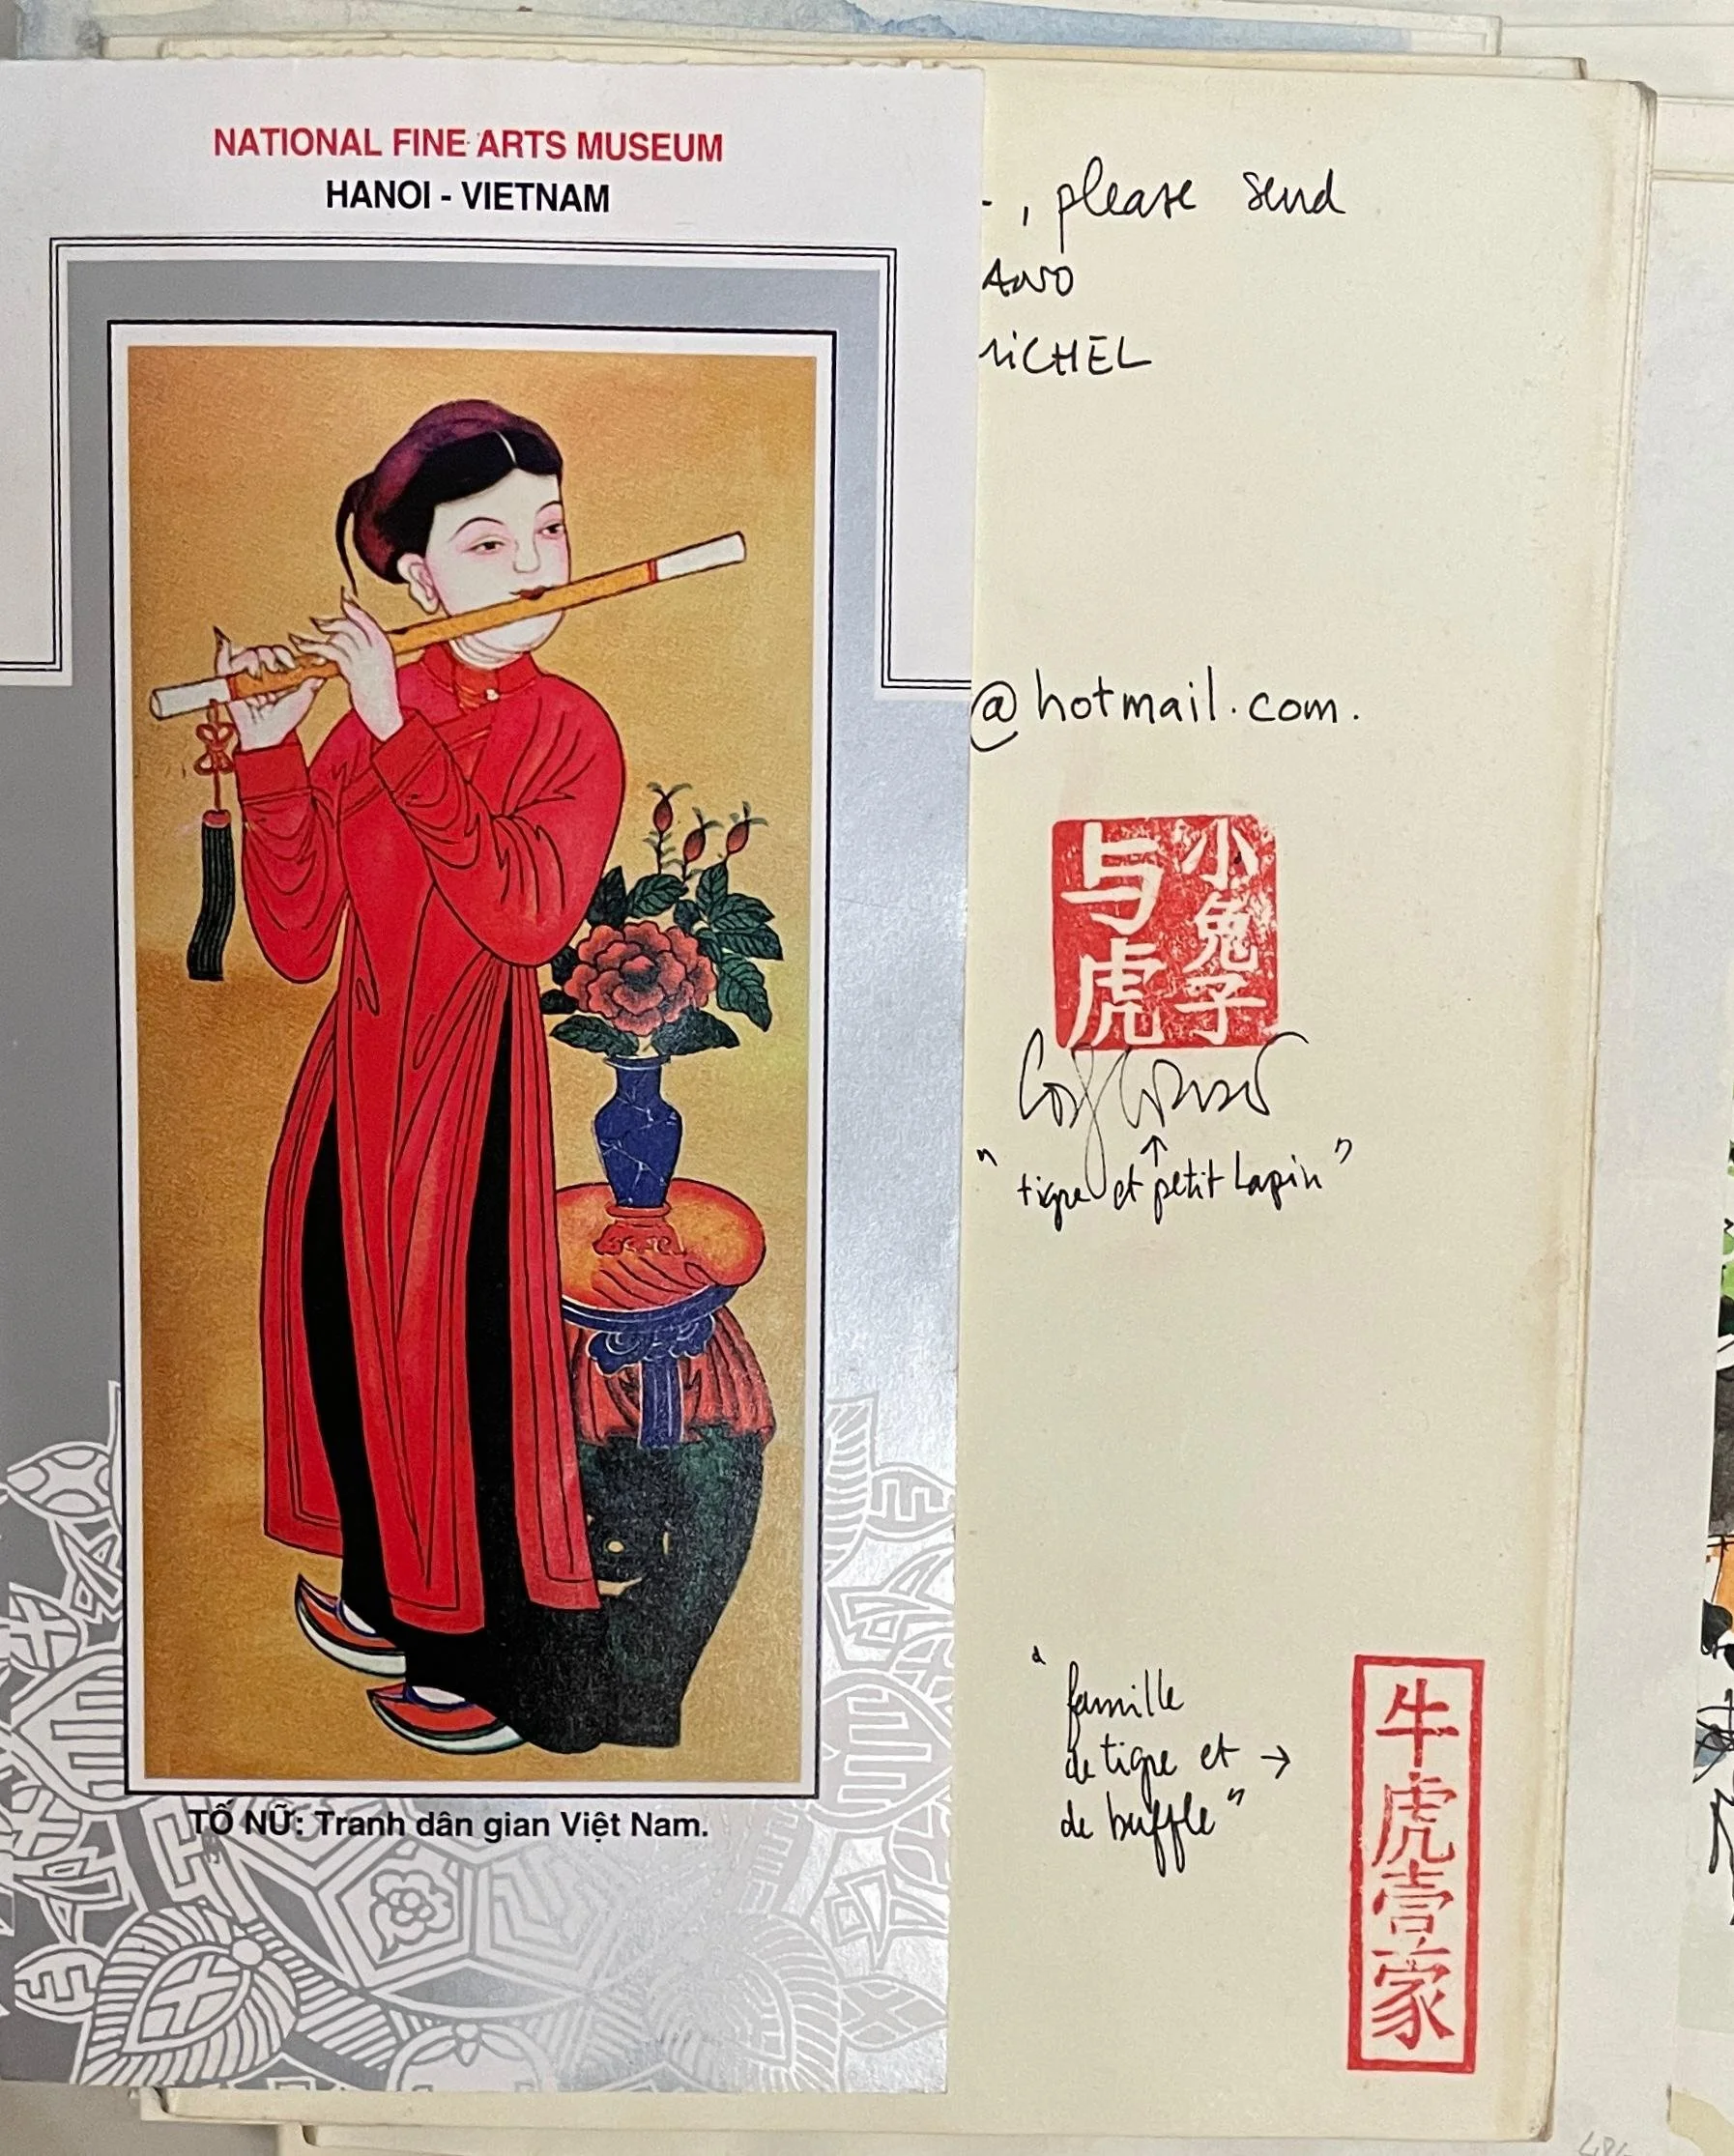 NATIONAL FINE ARTS MUSEUM
HANOI - VIETNAM
TỐ NỮ: Tranh dân gian Việt Nam.
, please send
@hotmail.com.
小兔子
与虎
"tigre et petit Lapin"
"famille
de tigre et →
de buffle"
牛虎壹家